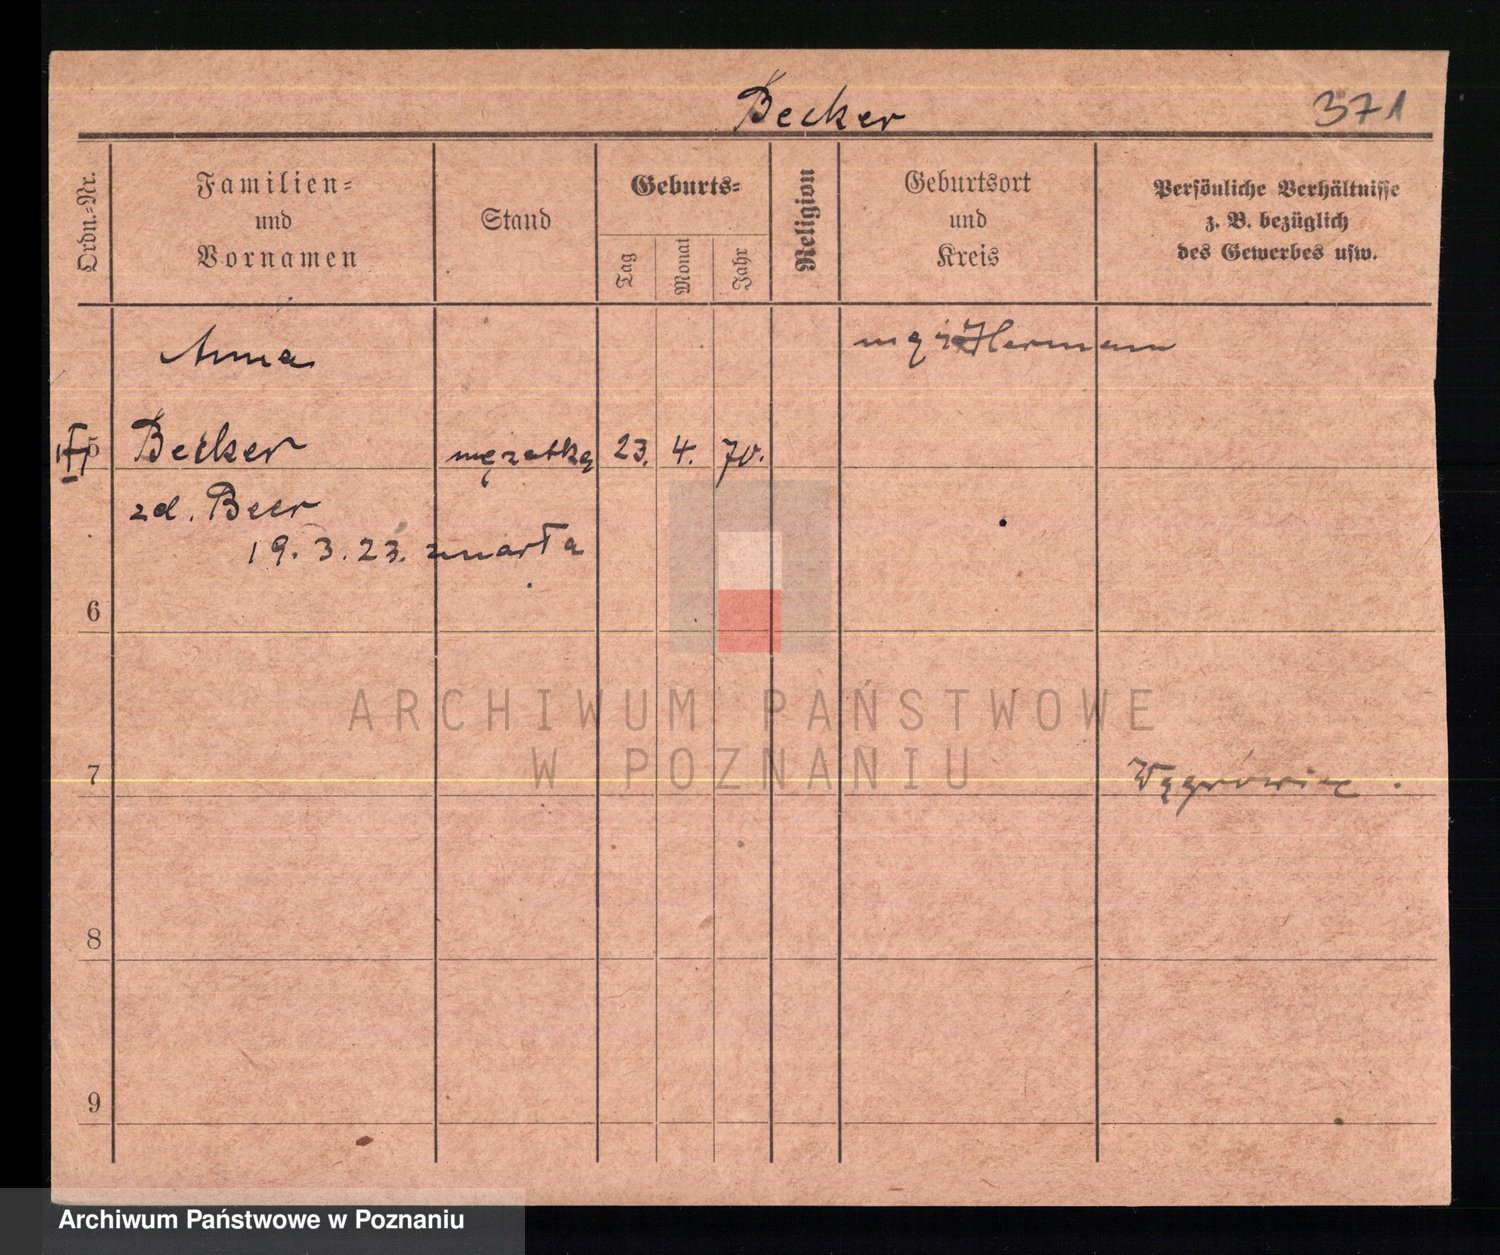 Becker
371
Ordn.-Nr.
Familien-
und
Vornamen
Stand
Geburts-
Tag
Monat
Jahr
Religion
Geburtsort
und
Kreis
Persönliche Verhältnisse
z. B. bezüglich
des Gewerbes usw.
Anna
mąż Hermann
5 Becker mężatka 23. 4. 70.
zd. Beer
19. 3. 23. zmarła
6
ARCHIWUM PAŃSTWOWE
W POZNANIU
7 Wągrowiec.
8
9
Archiwum Państwowe w Poznaniu